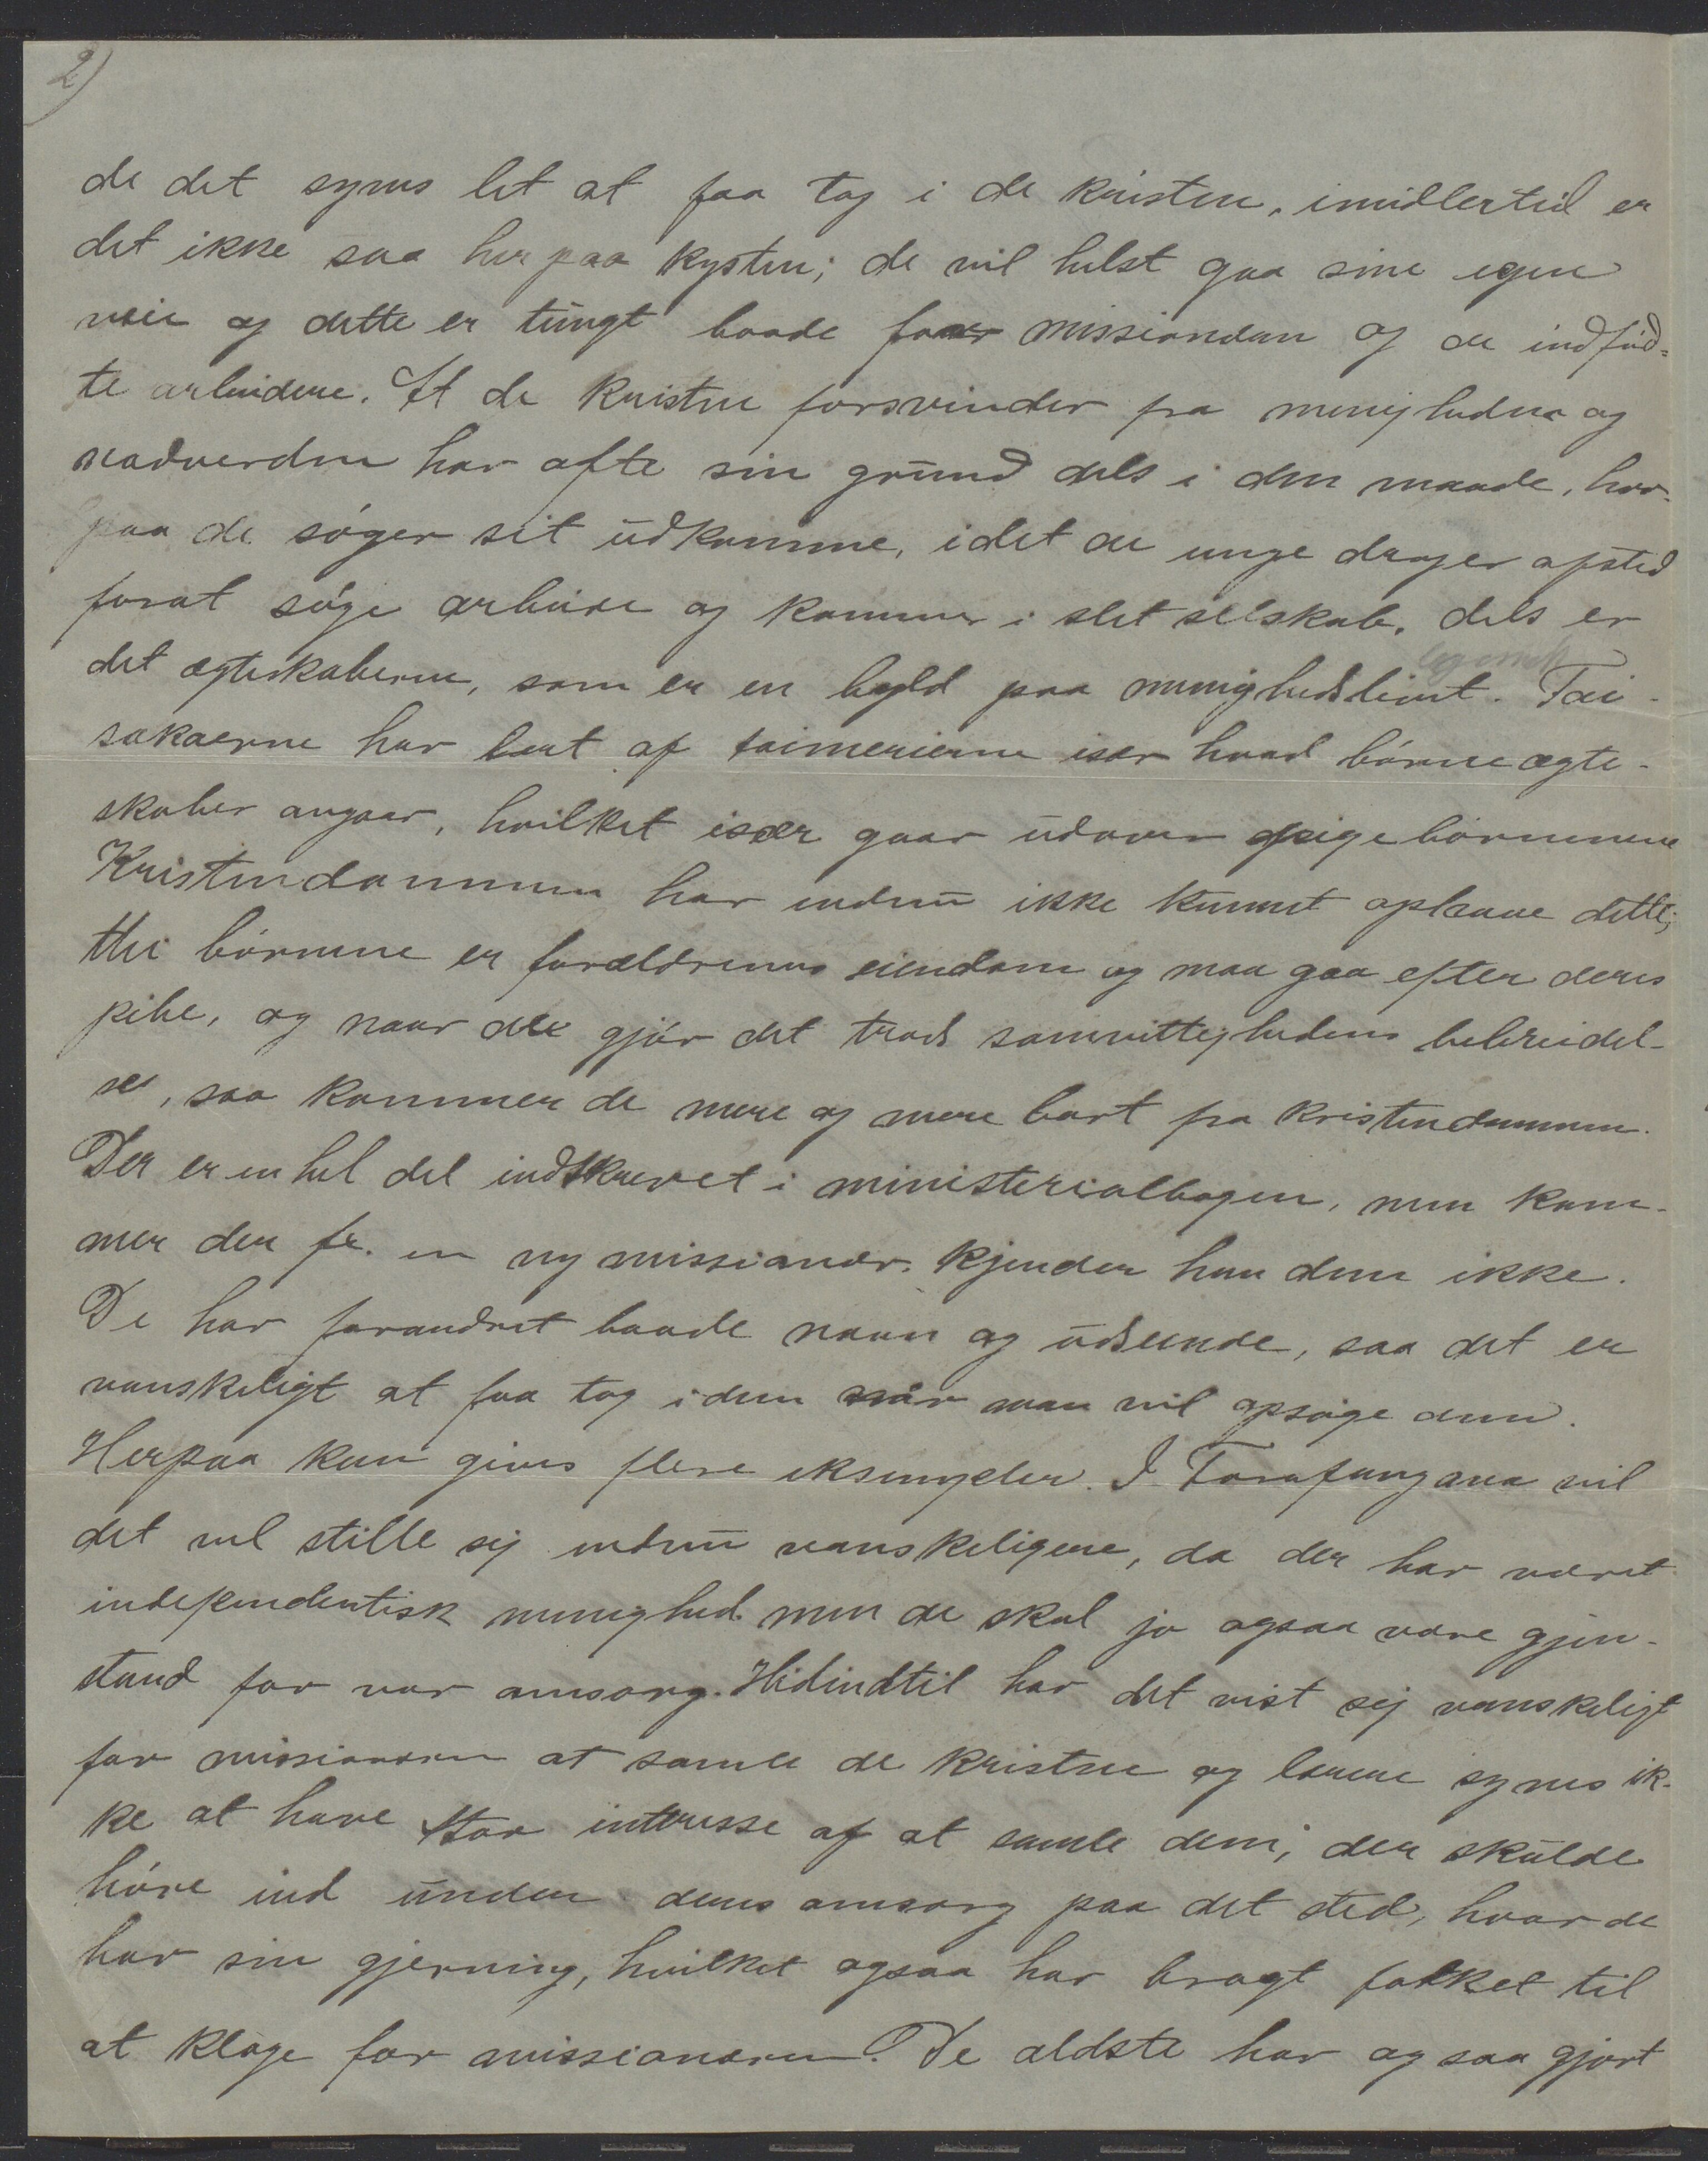 2)
de det synes let at faa tag i de kristne, imidlertid er
det ikke saa her paa kysten; de vil helst gaa sine egne
veie og dette er tungt baade for missionæren og de indfød-
te arbeidere. At de kristne forsvinder fra menigheden og
nadverden har ofte sin grund dels i den maade, hvor-
paa de søger sit udkomme, idet de unge drager afsted
forat søge arbeide og kommer i slet selskab, dels er
det ægteskaberne, som er en byld paa menighedslivet. Tai-
sakaerne har lært af taimerierne især hvad børneægte-
skaber angaar, hvilket især gaar udover pigebørnene
Kristendommen har endnu ikke kunnet ophæve dette;
thi børnene er forældrenes eiendom og maa gaa efter deres
pibe, og naar de gjør det trods samvittighedens bebreidel-
se, saa kommer de mere og mere bort fra kristendommen.
Der er en hel del indskrevet i ministerialbogen, men kom-
mer der fr. en ny missionær, kjender han dem ikke.
De har forandret baade navn og udseende, saa det er
vanskeligt at faa tag i dem når man vil opsøge dem.
Herpaa kan gives flere eksempler. I Farafangana vil
det vel stille sej endnu vanskeligere, da der har været
independentisk menighed men de skal jo ogsaa være gjen-
stand for vor omsorg. Hidindtil har det vist sej vanskeligt
for missionæren at samle de kristne og lærerne synes ik-
ke at have stor interesse af at samle dem, der skulde
høre ind under deres omsorg paa det sted, hvor de
har sin gjerning, hvilket ogsaa har bragt folket til
at klage for missionæren. De ældste har ogsaa gjort